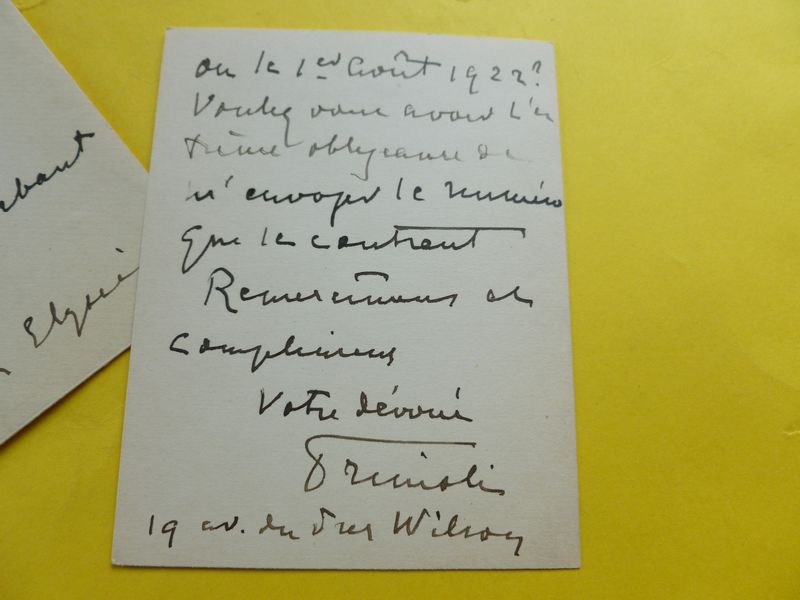 ou le 1er Août 1922?
Voulez vous avoir l'ex
trême obligeance de
m'envoyer le numéro
que les contient
Remerciemens et
complimens
Votre dévoué
Primoli
19 av. du Pres Wilson
Elysée